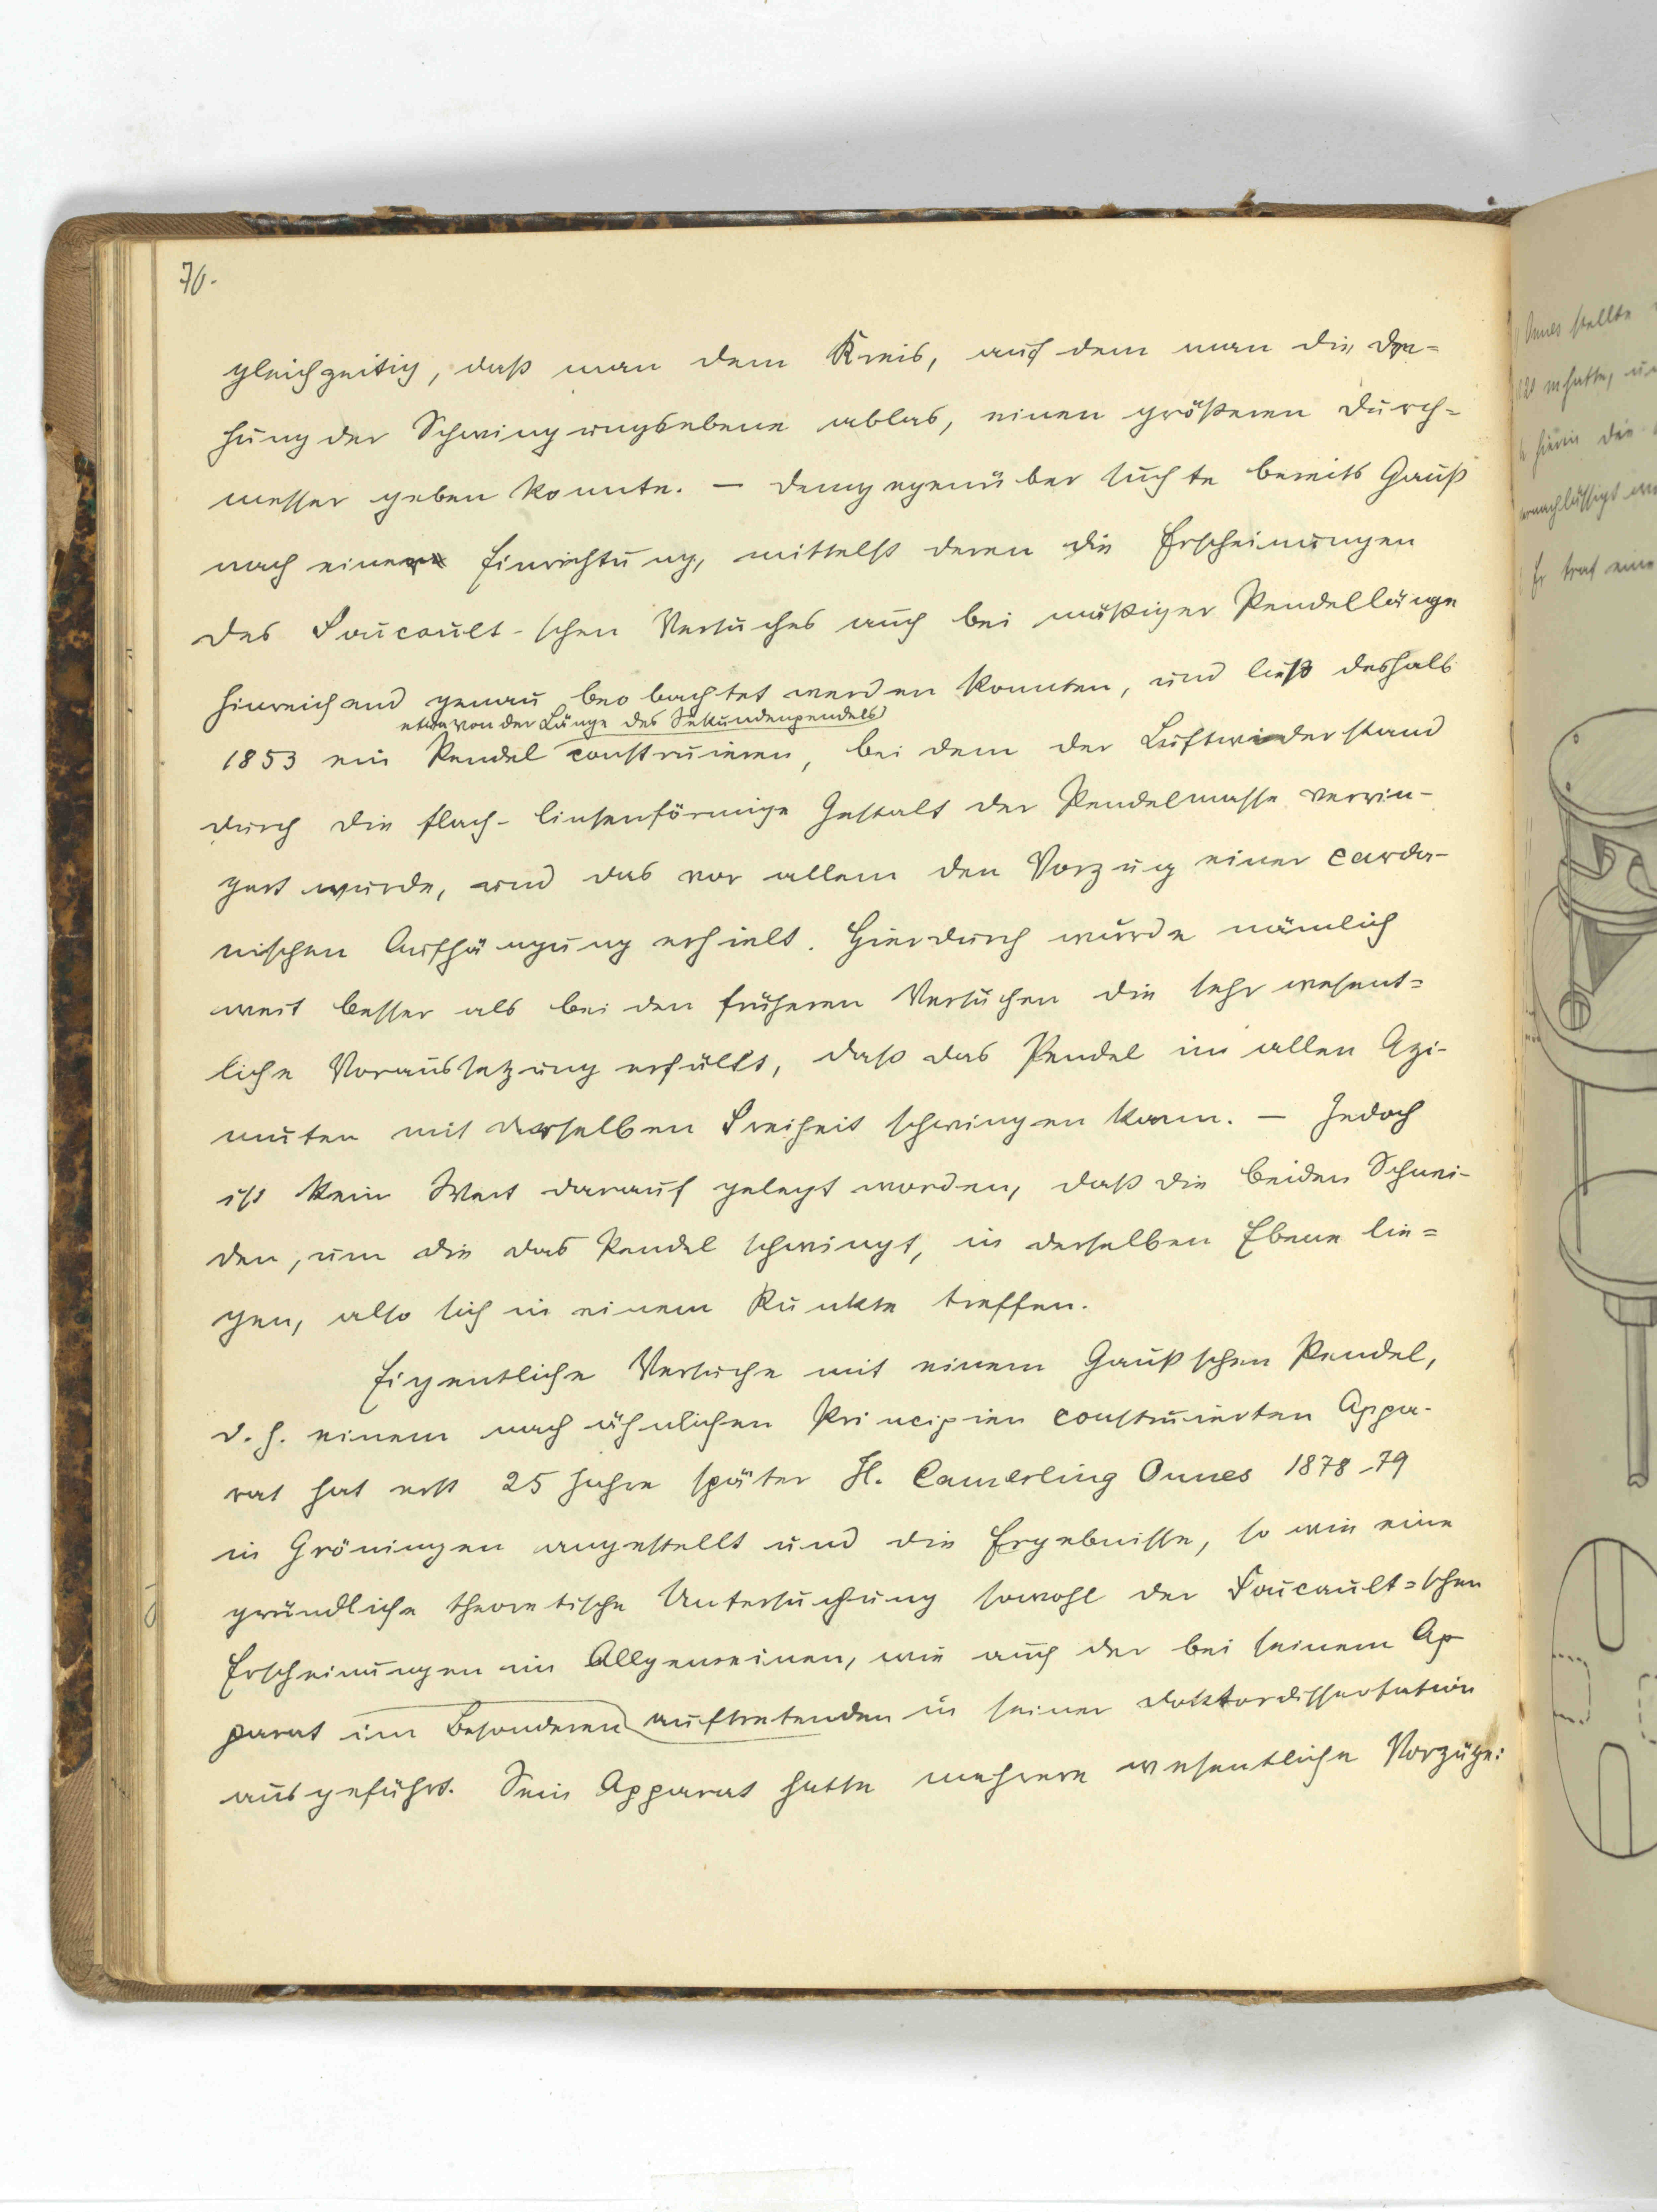 70.
gleichzeitig, daß man dem Kreis, auf dem man die Dre=
hung der Schwingungsebene ablas, einen größeren Durch=
messer geben konnte. — Demgegenüber suchte bereits Gauß
nach einer Einrichtung, mittelst deren die Erscheinungen
des Foucault-schen Versuches auch bei mäßiger Pendellänge
hinreichend genau beobachtet werden konnten, und ließ deshalb
etwa von der Länge des Sekundenpendels
1853 ein Pendel construieren, bei dem der Luftwiderstand
durch die flach-linsenförmige Gestalt der Pendelmasse verrin-
gert wurde, und das vor allem den Vorzug einer carda-
nischen Aufhängung erhielt. Hierdurch wurde nämlich
weit besser als bei den früheren Versuchen die sehr wesent=
liche Voraussetzung erfüllt, daß das Pendel in allen Azi-
muten mit derselben Freiheit schwingen kann. — Jedoch
ist kein Wert darauf gelegt worden, daß die beiden Schnei-
den, um die das Pendel schwingt, in derselben Ebene lie=
gen, also sich in einem Punkte treffen.
Eigentliche Versuche mit einem Gaußschen Pendel,
d. h. einem nach ähnlichen Principien construierten Appa-
rat hat erst 25 Jahre später H. Camerling Onnes 1878-79
in Gröningen angestellt und die Ergebnisse, so wie eine
gründliche theoretische Untersuchung sowohl der Foucault=schen
Erscheinungen im Allgemeinen, wie auch der bei seinem Ap
parat im Besonderen auftretenden in seiner Doktordissertation
ausgeführt. Sein Apparat hatte mehrere wesentliche Vorzüge:
Onnes stellte
hatte,
hierin die
Er traf eine